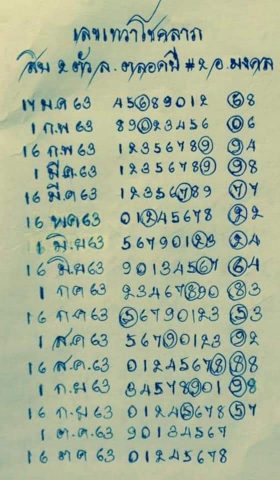 เลขเทวาโชคลาภ
สิบ 2 ตัว ล. ตลอดปี #2 อ. มงคล
17 ม ค 63 45689012 68
1 ก.พ 63 89023456 06
16 ก พ 63 12356789 94
1 มี.ค 63 12356789 98
16 มี.ค 63 12356789 77
16 พ.ค 63 01245678 22
1 มิ.ย 63 56790123 24
16 มิ.ย 63 90134567 64
1 ก ค 63 23467890 83
16 ก ค 63 56790123 53
1 ส.ค 63 56790123 92
16 ส.ค. 63 01245678 88
1 ก.ย 63 34578901 98
16 ก.ย 63 01245678 57
1 ต.ค. 63 90134567
16 ต ค 63 01245678